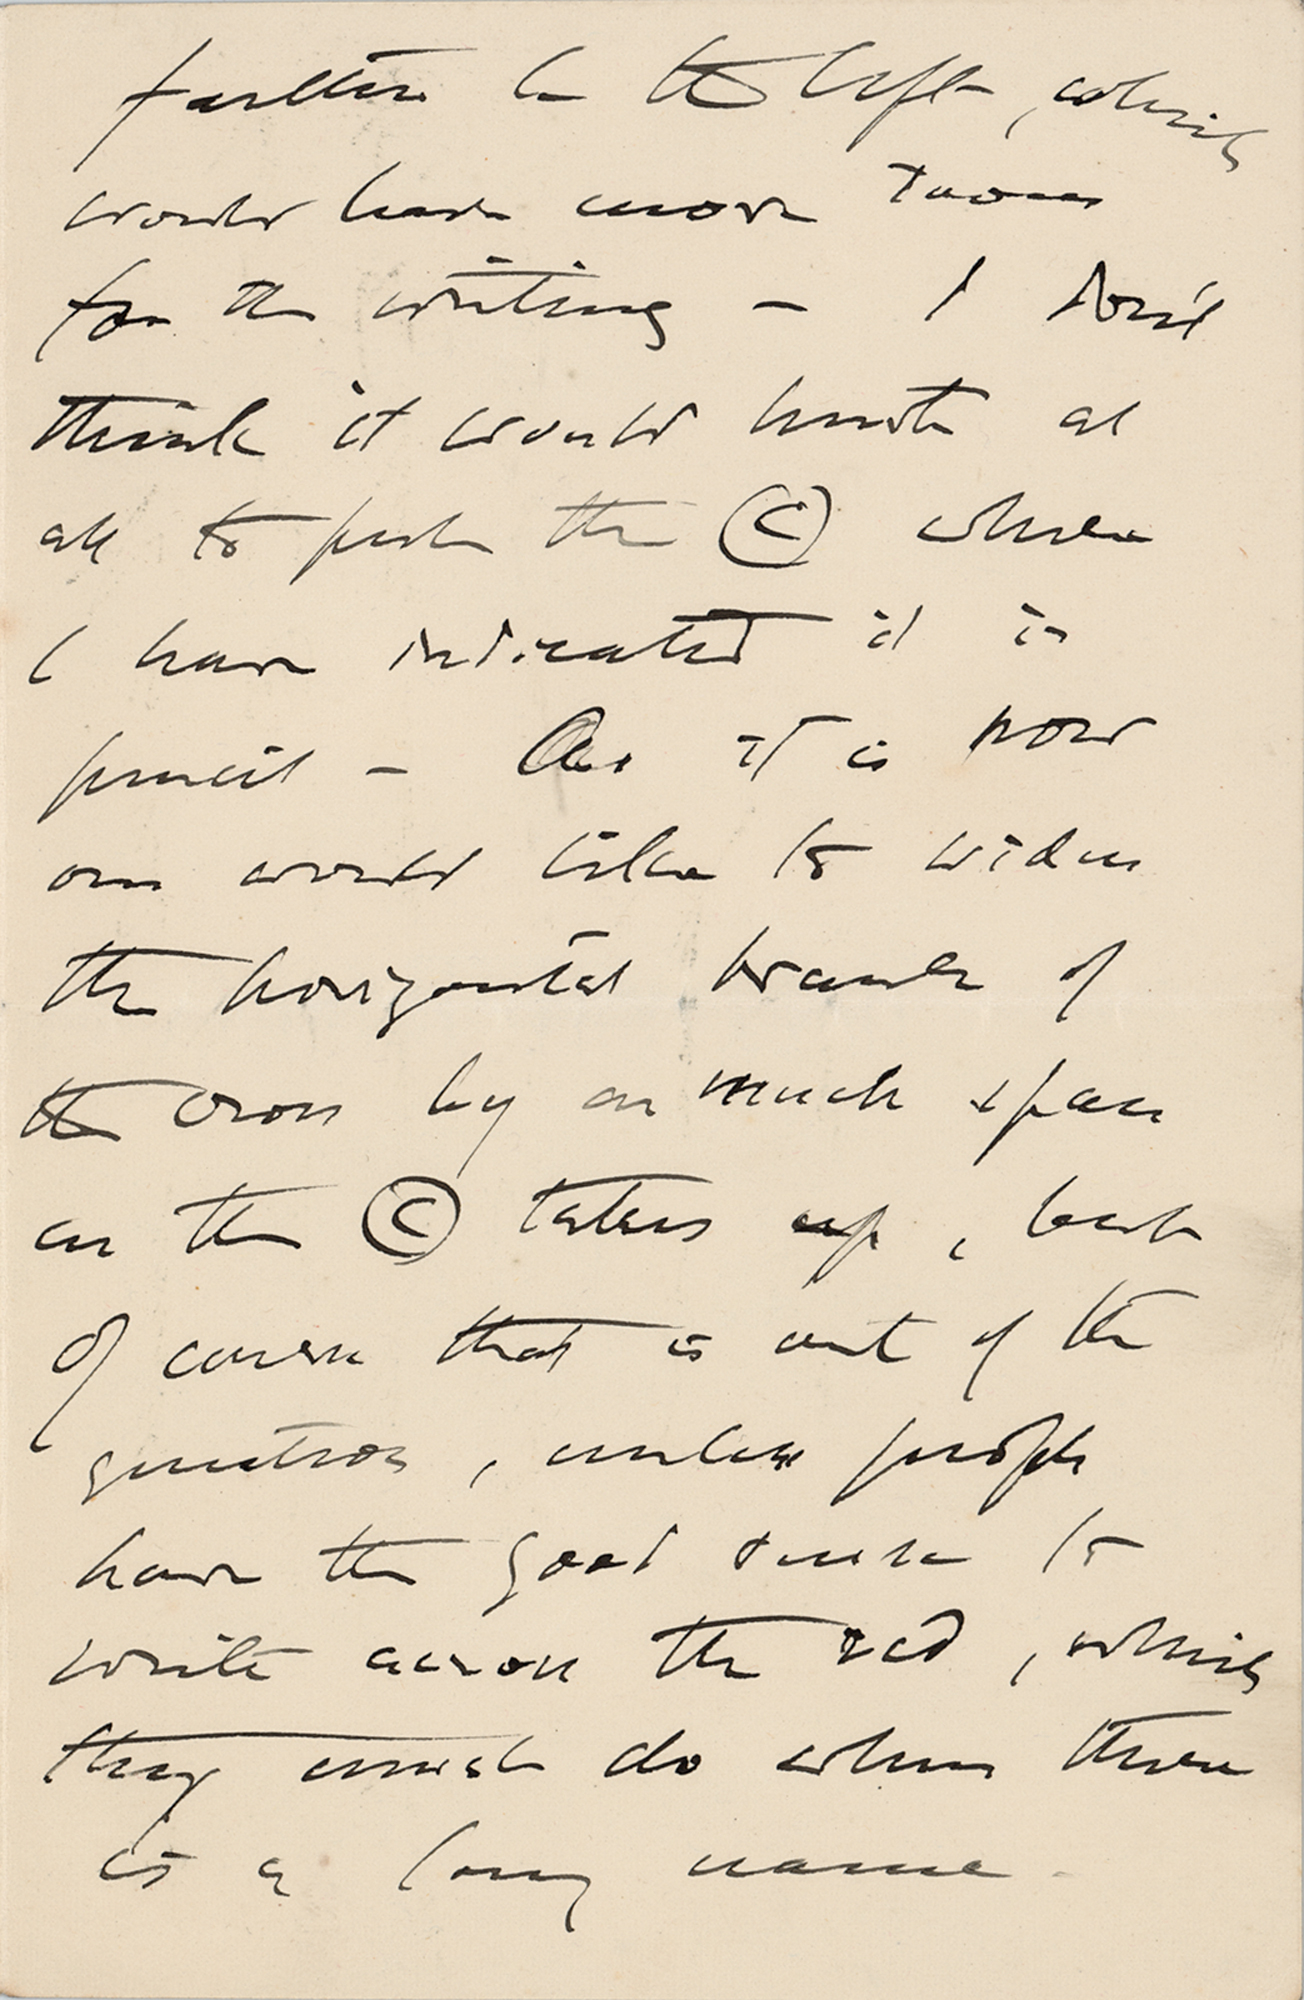 farther to the left, which
would leave more room
for the writing – I don't
think it would hurt at
all to push the © where
I have indicated it in
pencil – As it is now
one would like to widen
the horizontal branch of
the cross by as much space
as the © takes up, but
of course that is out of the
question, unless people
have the good sense to
write across the red, which
they must do when there
is a long name